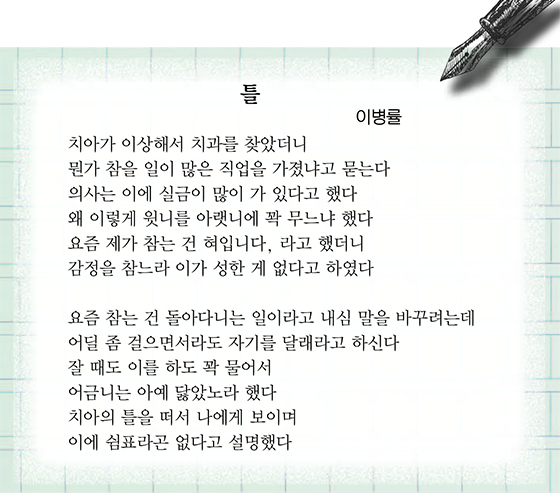 틀
이병률
치아가 이상해서 치과를 찾았더니
뭔가 참을 일이 많은 직업을 가졌냐고 묻는다
의사는 이에 실금이 많이 가 있다고 했다
왜 이렇게 윗니를 아랫니에 꽉 무느냐 했다
요즘 제가 참는 건 혀입니다, 라고 했더니
감정을 참느라 이가 성한 게 없다고 하였다
요즘 참는 건 돌아다니는 일이라고 내심 말을 바꾸려는데
어딜 좀 걸으면서라도 자기를 달래라고 하신다
잘 때도 이를 하도 꽉 물어서
어금니는 아예 닳았노라 했다
치아의 틀을 떠서 나에게 보이며
이에 쉼표라곤 없다고 설명했다